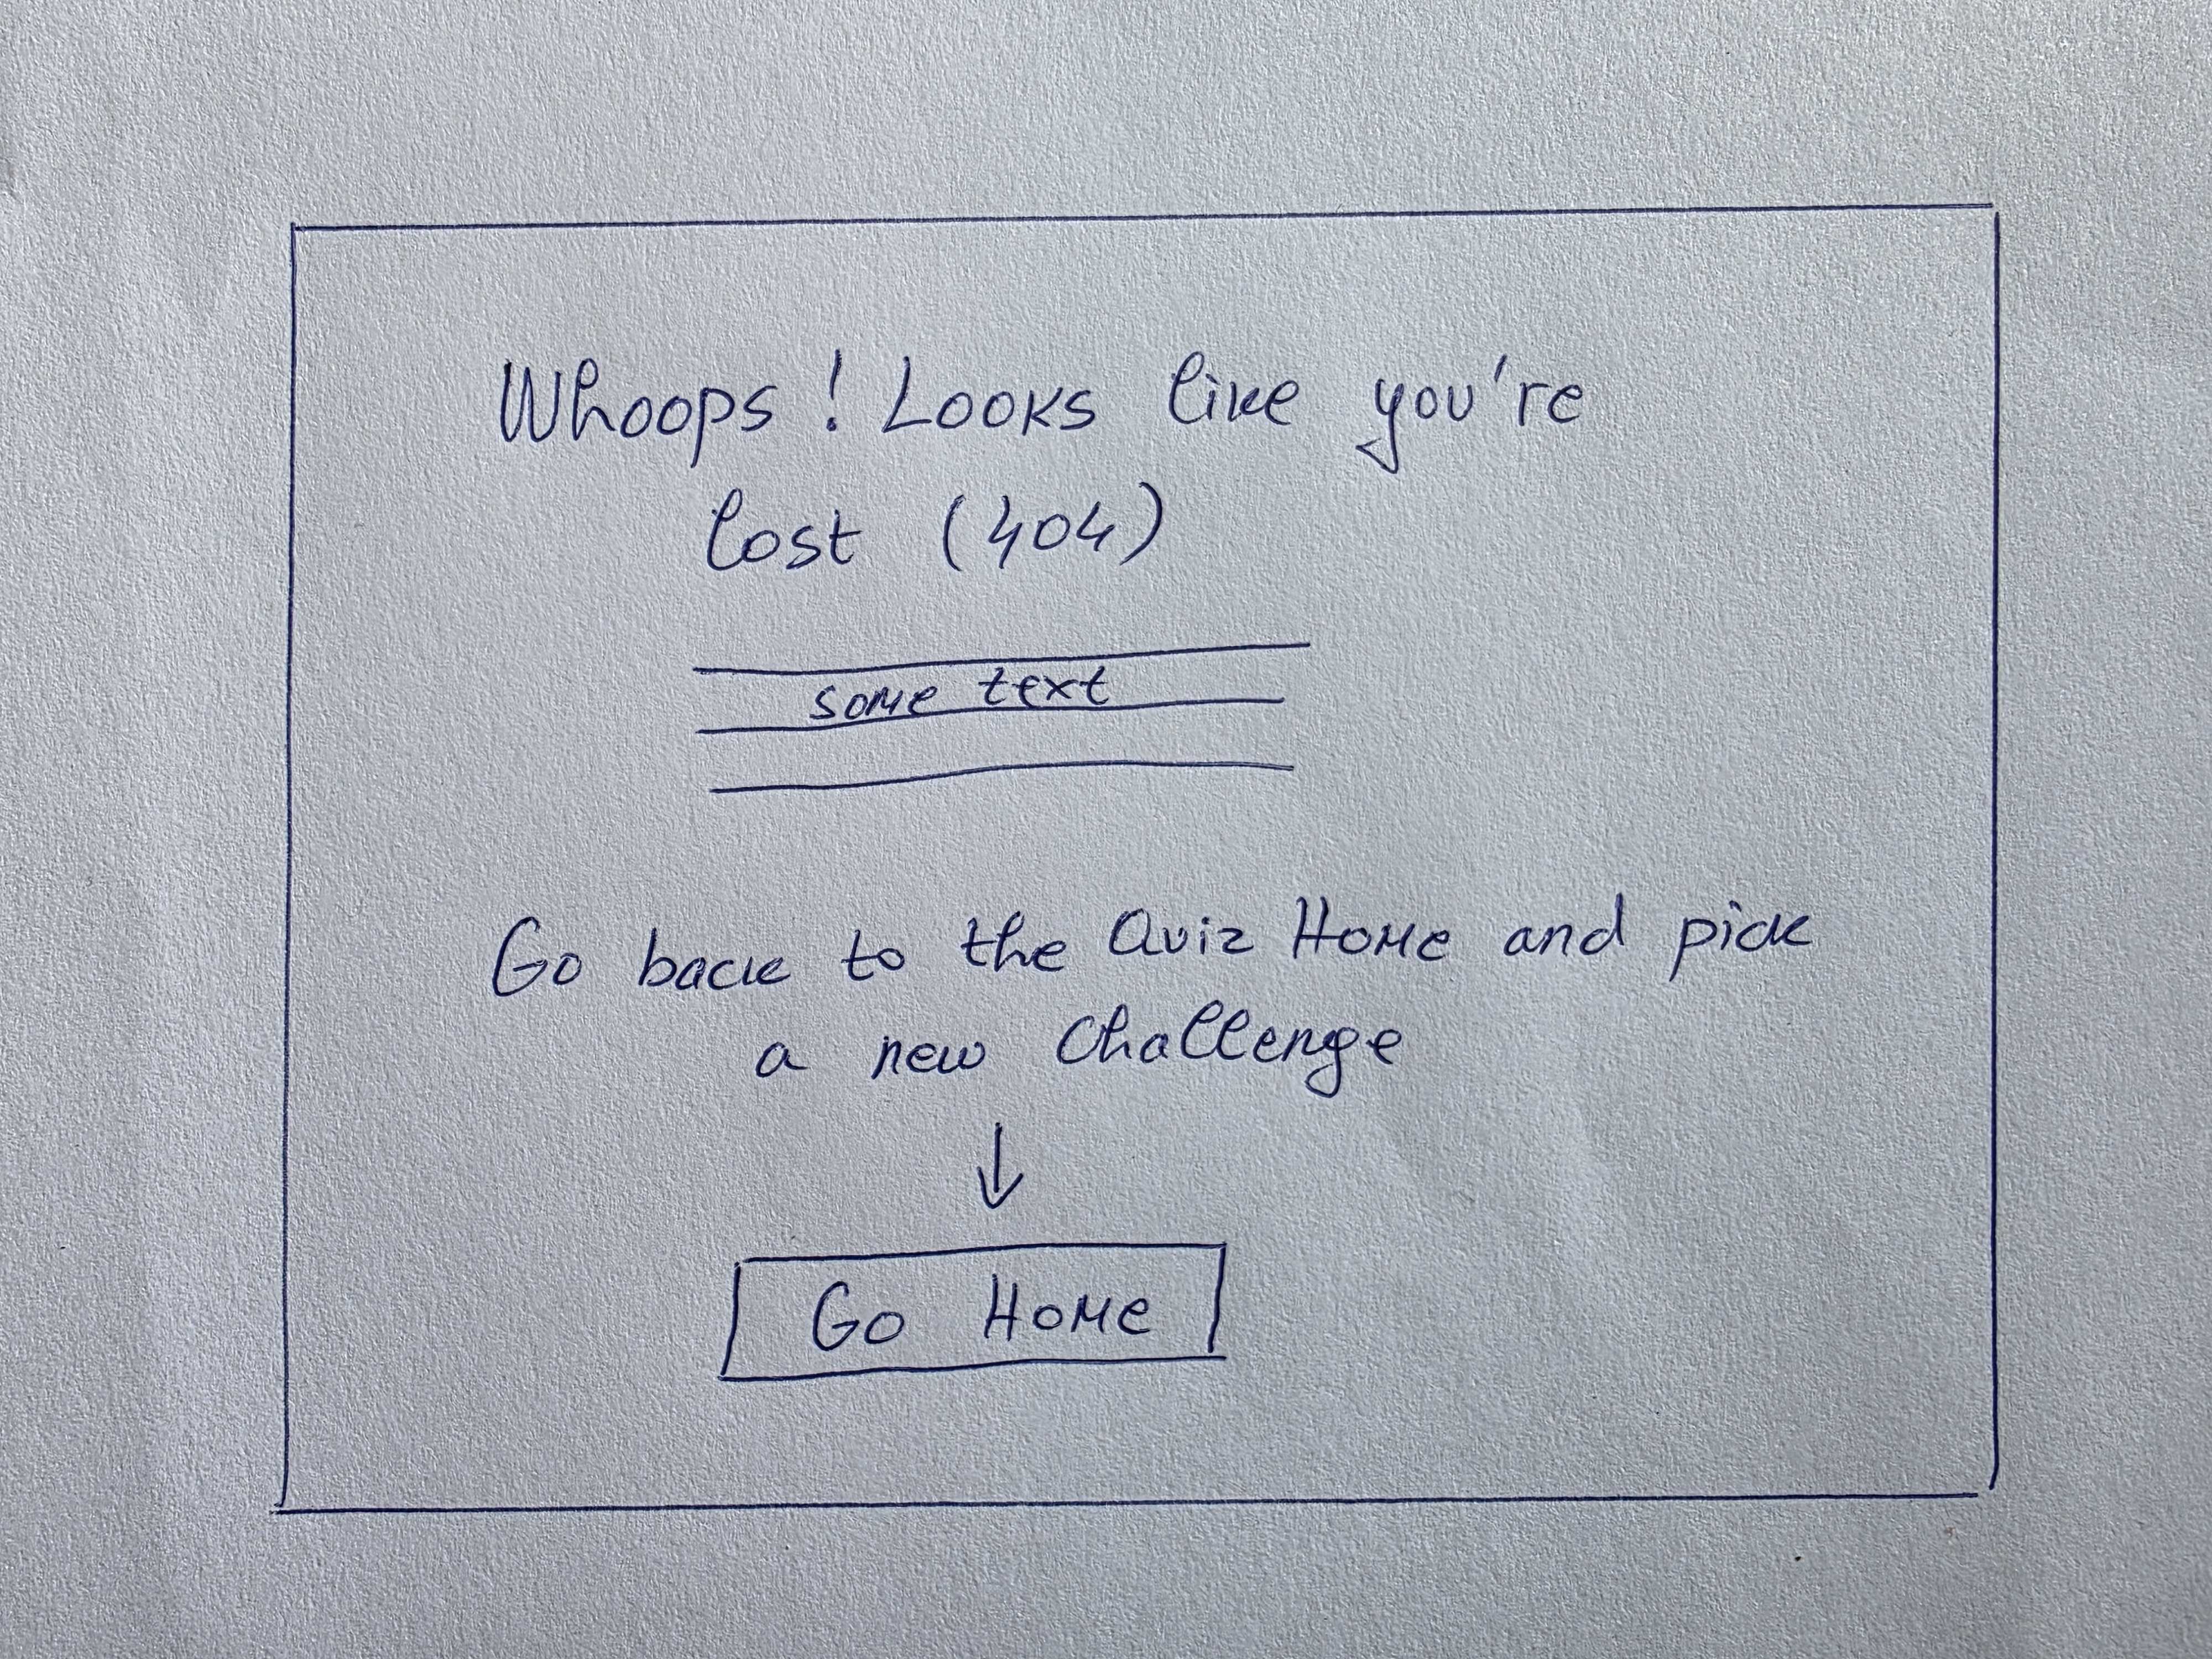 Whoops! Looks like you're
lost (404)
some text
Go back to the Quiz Home and pick
a new challenge
Go Home